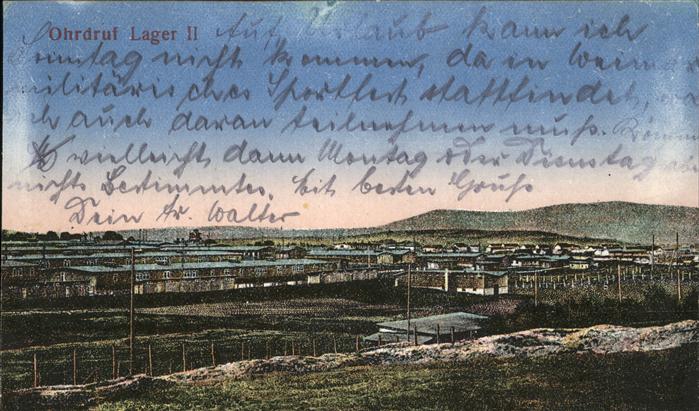 Ohrdruf Lager II
Auf Urlaub kann ich
Sonntag nicht kommen, da in Weimar
militärisches Sportfest stattfindet, wo
ich auch daran teilnehmen muß. Komme
vielleicht dann Montag oder Dienstag
nichts Bestimmtes. Mit besten Gruß
Dein Fr. Walter